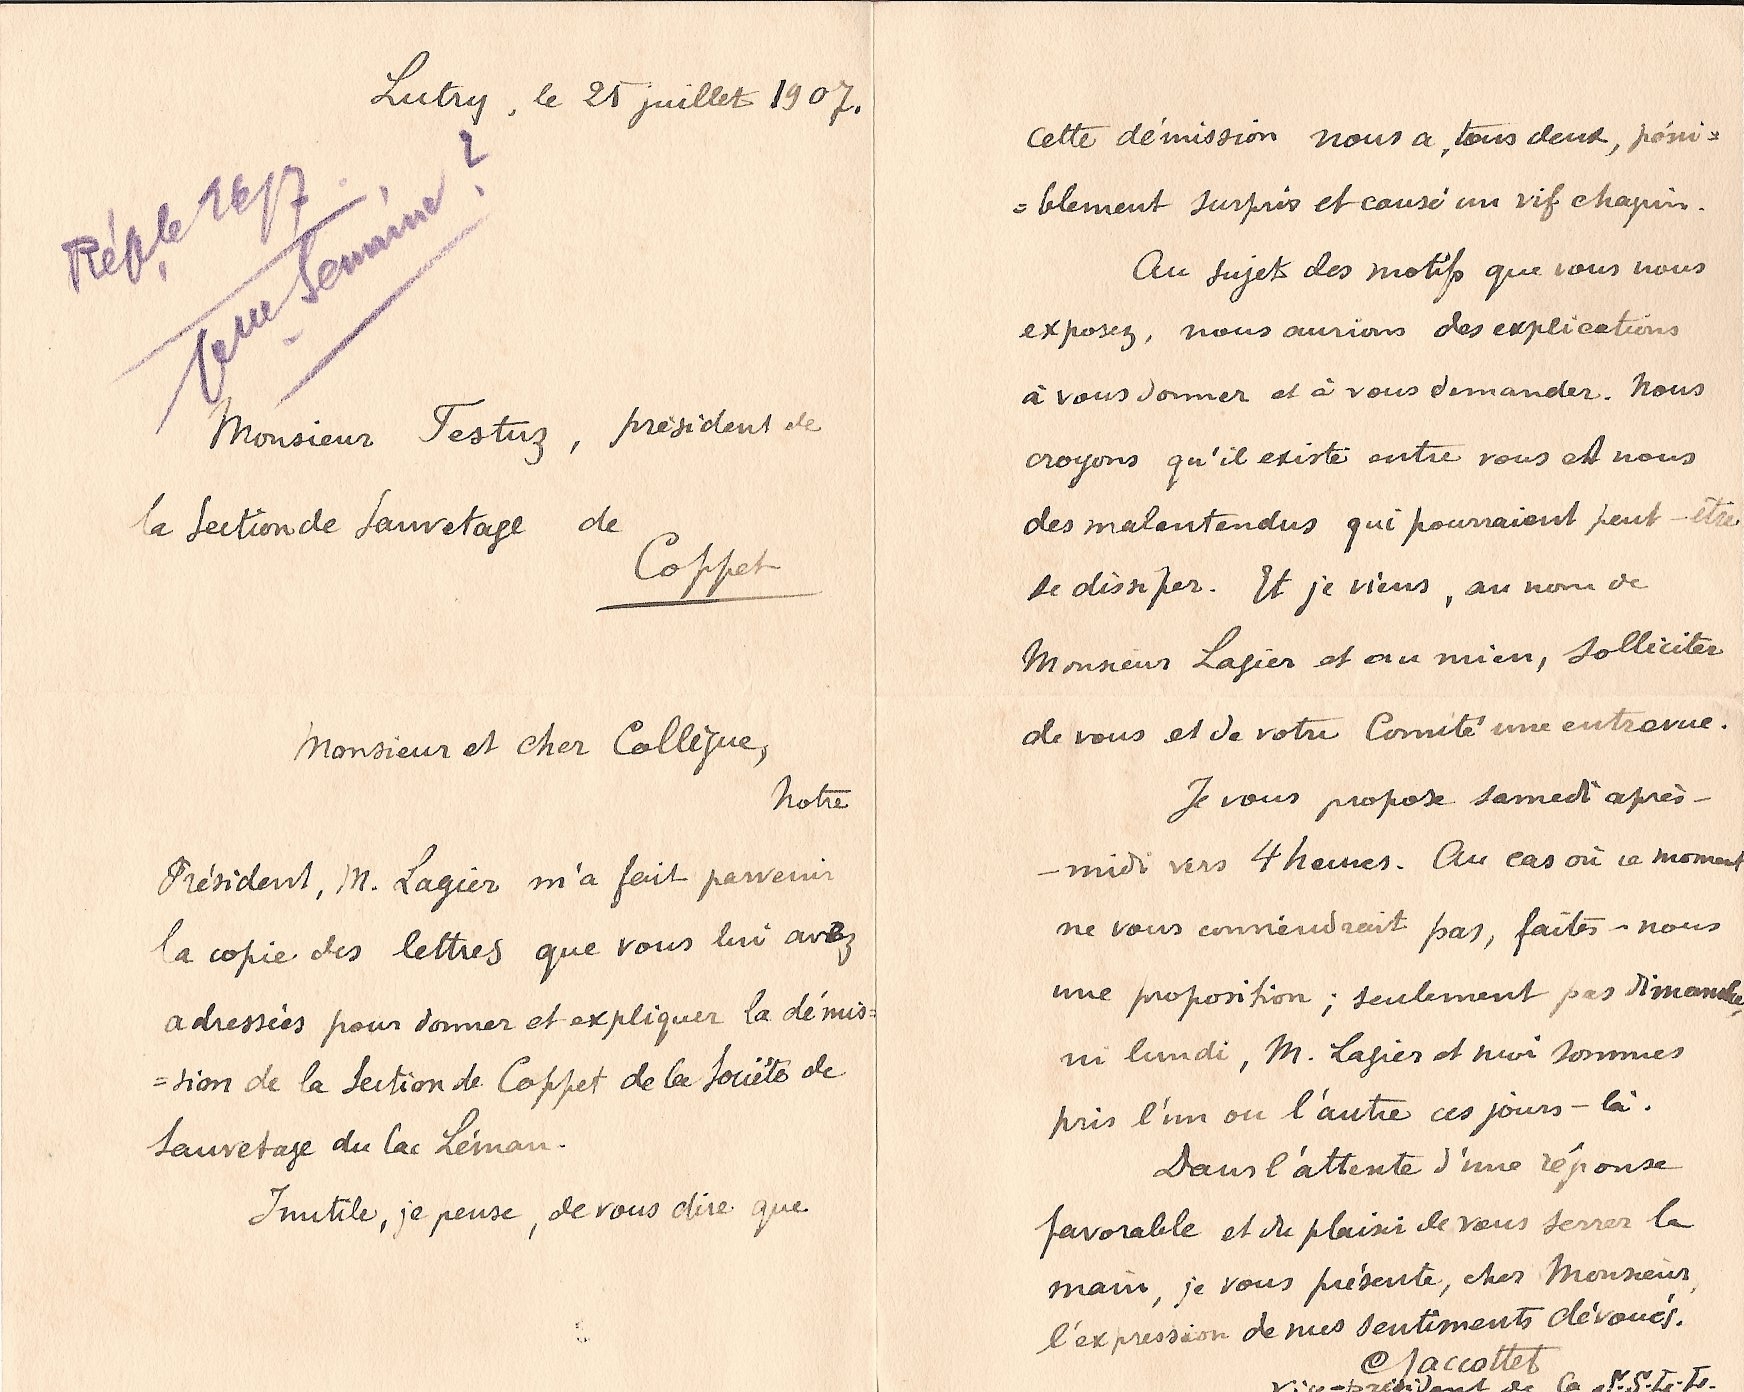 Lutry, le 25 juillet 1907.
Rép. le 26/7
Monsieur Testuz, président de
la Section de Sauvetage de
Coppet
Monsieur et cher Collègue,
Notre
Président, M. Lagier m'a fait parvenir
la copie des lettres que vous lui avez
adressées pour donner et expliquer la démis=
=sion de la Section de Coppet de la Société de
Sauvetage du lac Léman.
Inutile, je pense, de vous dire que
cette démission nous a, tous deux, péni=
=blement surpris et causé un vif chagrin.
Au sujet des motifs que vous nous
exposez, nous aurions des explications
à vous donner et à vous demander. Nous
croyons qu'il existe entre vous et nous
des malentendus qui pourraient peut-être
se dissiper. Et je viens, au nom de
Monsieur Lagier et au mien, solliciter
de vous et de votre Comité une entrevue.
Je vous propose samedi après-
-midi vers 4 heures. Au cas où ce moment
ne vous conviendrait pas, faites-nous
une proposition; seulement pas dimanche,
ni lundi, M. Lagier et moi sommes
pris l'un ou l'autre ces jours-là.
Dans l'attente d'une réponse
favorable et du plaisir de vous serrer la
main, je vous présente, cher Monsieur,
l'expression de mes sentiments dévoués.
Jaccottet
Vice-président de la